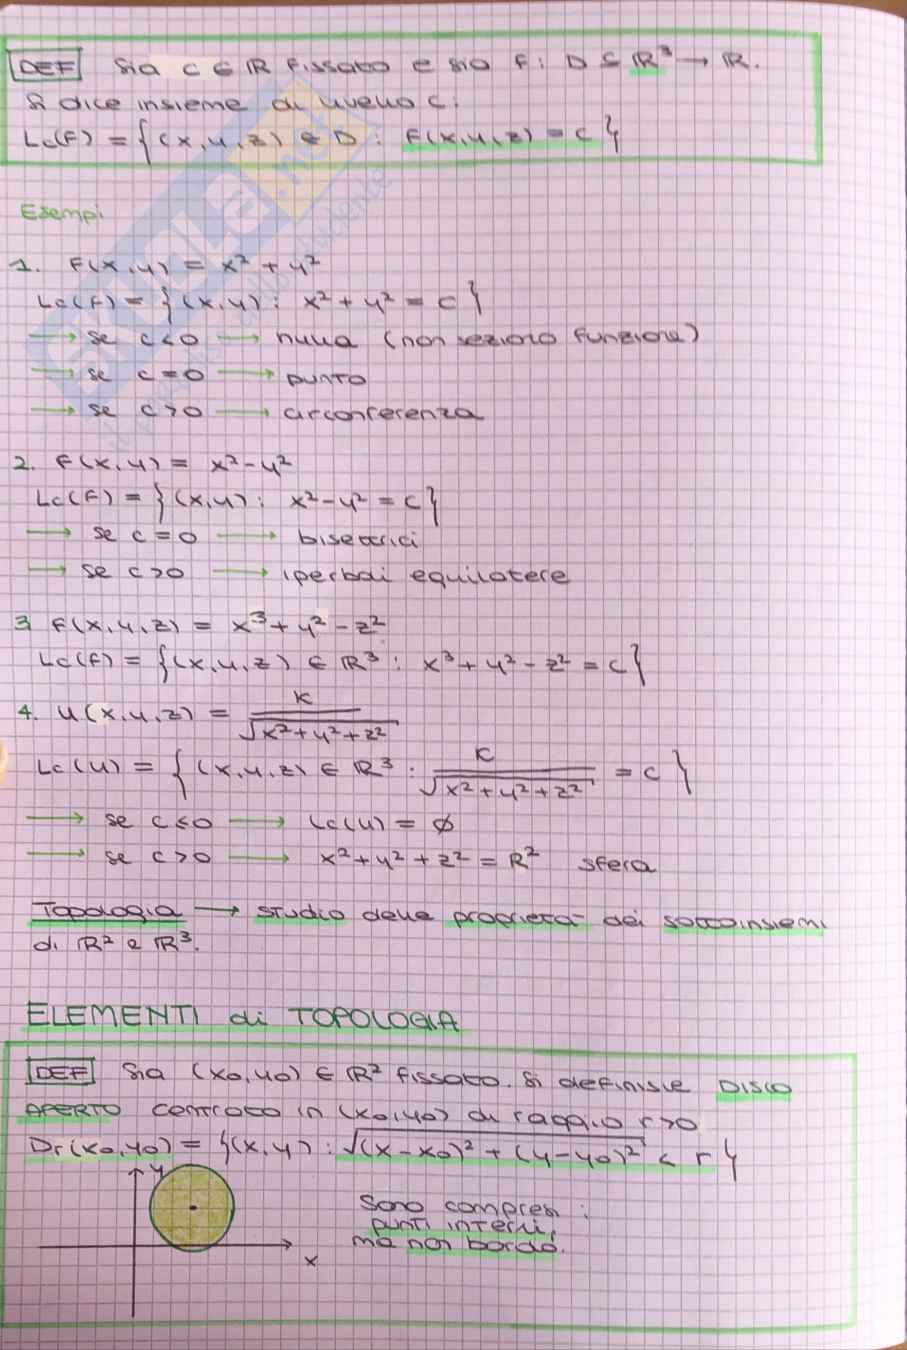 DEF Sia c ∈ ℝ fissato e sia f: D ⊆ ℝ³ → ℝ.
Si dice insieme di livello c:
Lc(f) = {(x,y,z) ∈ D : f(x,y,z) = c}
Esempi
1. f(x,y) = x² + y²
Lc(f) = {(x,y): x² + y² = c}
→ se c<0 → nulla (non seziono funzione)
→ se c=0 → punto
→ se c>0 → circonferenza
2. f(x,y) = x² - y²
Lc(f) = {(x,y): x² - y² = c}
→ se c=0 → bisettrici
→ se c>0 → iperboli equilatere
3 f(x,y,z) = x³ + y² - z²
Lc(f) = {(x,y,z) ∈ ℝ³ : x³ + y² - z² = c}
4. u(x,y,z) = k/√(x²+y²+z²)
Lc(u) = {(x,y,z) ∈ ℝ³ : k/√(x²+y²+z²) = c}
→ se c≤0 → Lc(u) = ∅
→ se c>0 → x² + y² + z² = R² sfera
Topologia → studio delle proprietà dei sottoinsiemi
di ℝ² e ℝ³.
ELEMENTI di TOPOLOGIA
DEF Sia (x₀,y₀) ∈ ℝ² fissato. Si definisce DISCO
APERTO centrato in (x₀,y₀) di raggio r>0
Dr(x₀,y₀) = {(x,y) : √((x-x₀)² + (y-y₀)²) < r}
y
x
Sono compresi:
punti interni,
ma non bordo.
SKUOLA.net